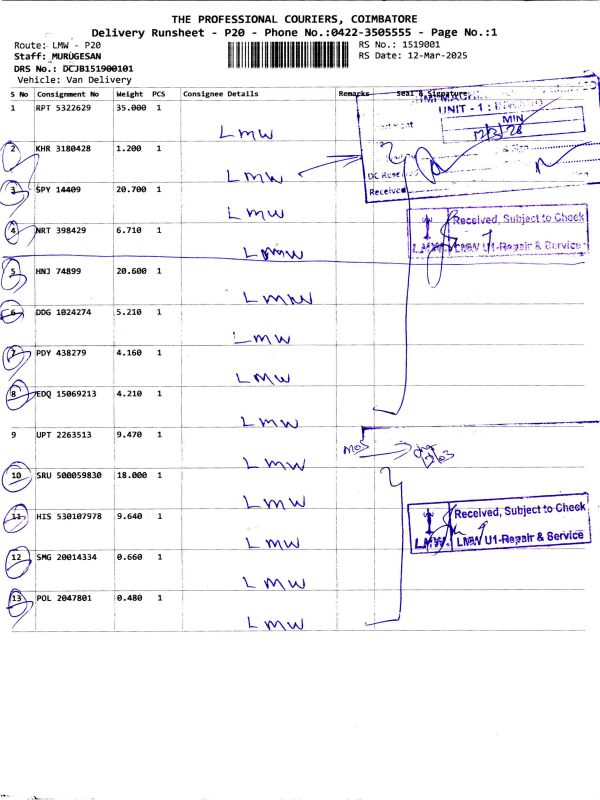 THE PROFESSIONAL COURIERS, COIMBATORE
Delivery Runsheet - P20 - Phone No.:0422-3505555 - Page No.:1
Route: LMW - P20
RS No.: 1519001
Staff: MURUGESAN
RS Date: 12-Mar-2025
DRS No.: DCJB151900101
Vehicle: Van Delivery
S No Consignment No Weight PCS Consignee Details Remarks Seal & Signature
1 RPT 5322629 35.000 1
LMW
UNIT - 1 :
MIN
2 KHR 3180428 1.200 1
LMW
Received
3 SPY 14409 20.700 1
LMW
Received, Subject to Check
4 NRT 398429 6.710 1
LMW
LMW LMW U1-Repair & Service
5 HNJ 74899 20.600 1
LMW
6 DDG 1024274 5.210 1
LMW
7 PDY 438279 4.160 1
LMW
8 EDQ 15069213 4.210 1
LMW
9 UPT 2263513 9.470 1
LMW
10 SRU 500059830 18.000 1
LMW
Received, Subject to Check
11 HIS 530107978 9.640 1
LMW
LMW LMW U1-Repair & Service
12 SMG 20014334 0.660 1
LMW
13 POL 2047801 0.480 1
LMW